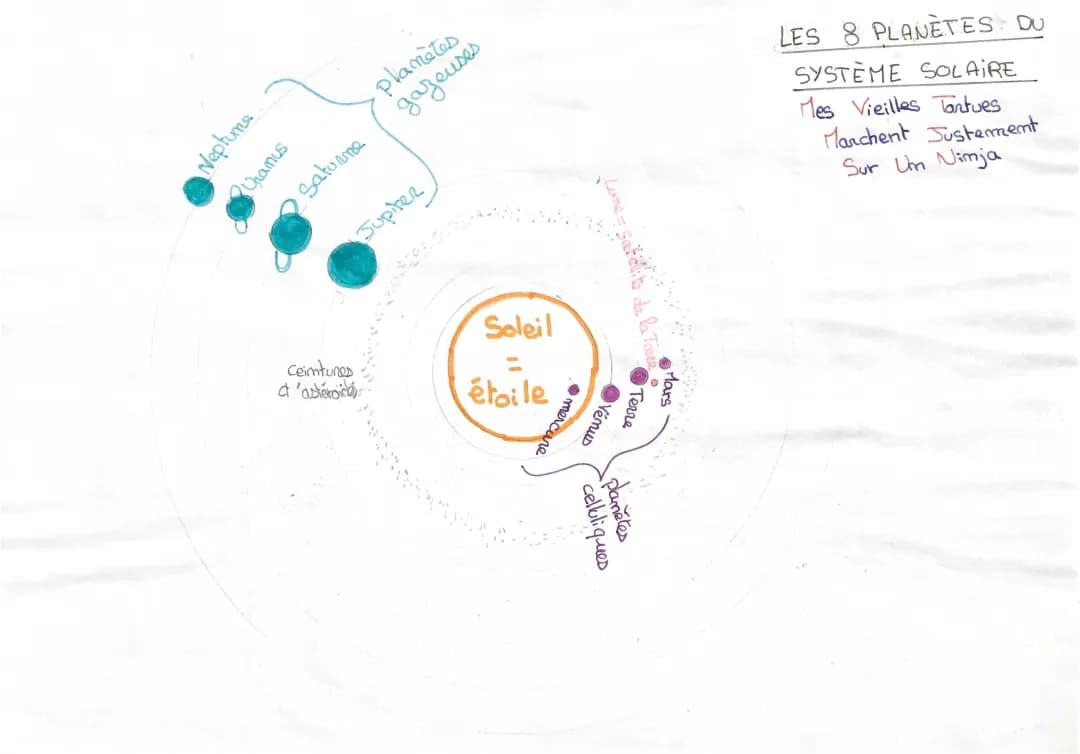 LES 8 PLANÈTES DU
SYSTÈME SOLAIRE
Mes Vieilles Tortues
Marchent Justement
Sur Un Ninja
planètes
gazeuses
Neptune
Uranus
Saturne
Jupiter
Lune = satellite de la Terre
Soleil
=
étoile
Ceintures
d'astéroïdes
mercure
Vénus
Terre
Mars
planètes
celluliques